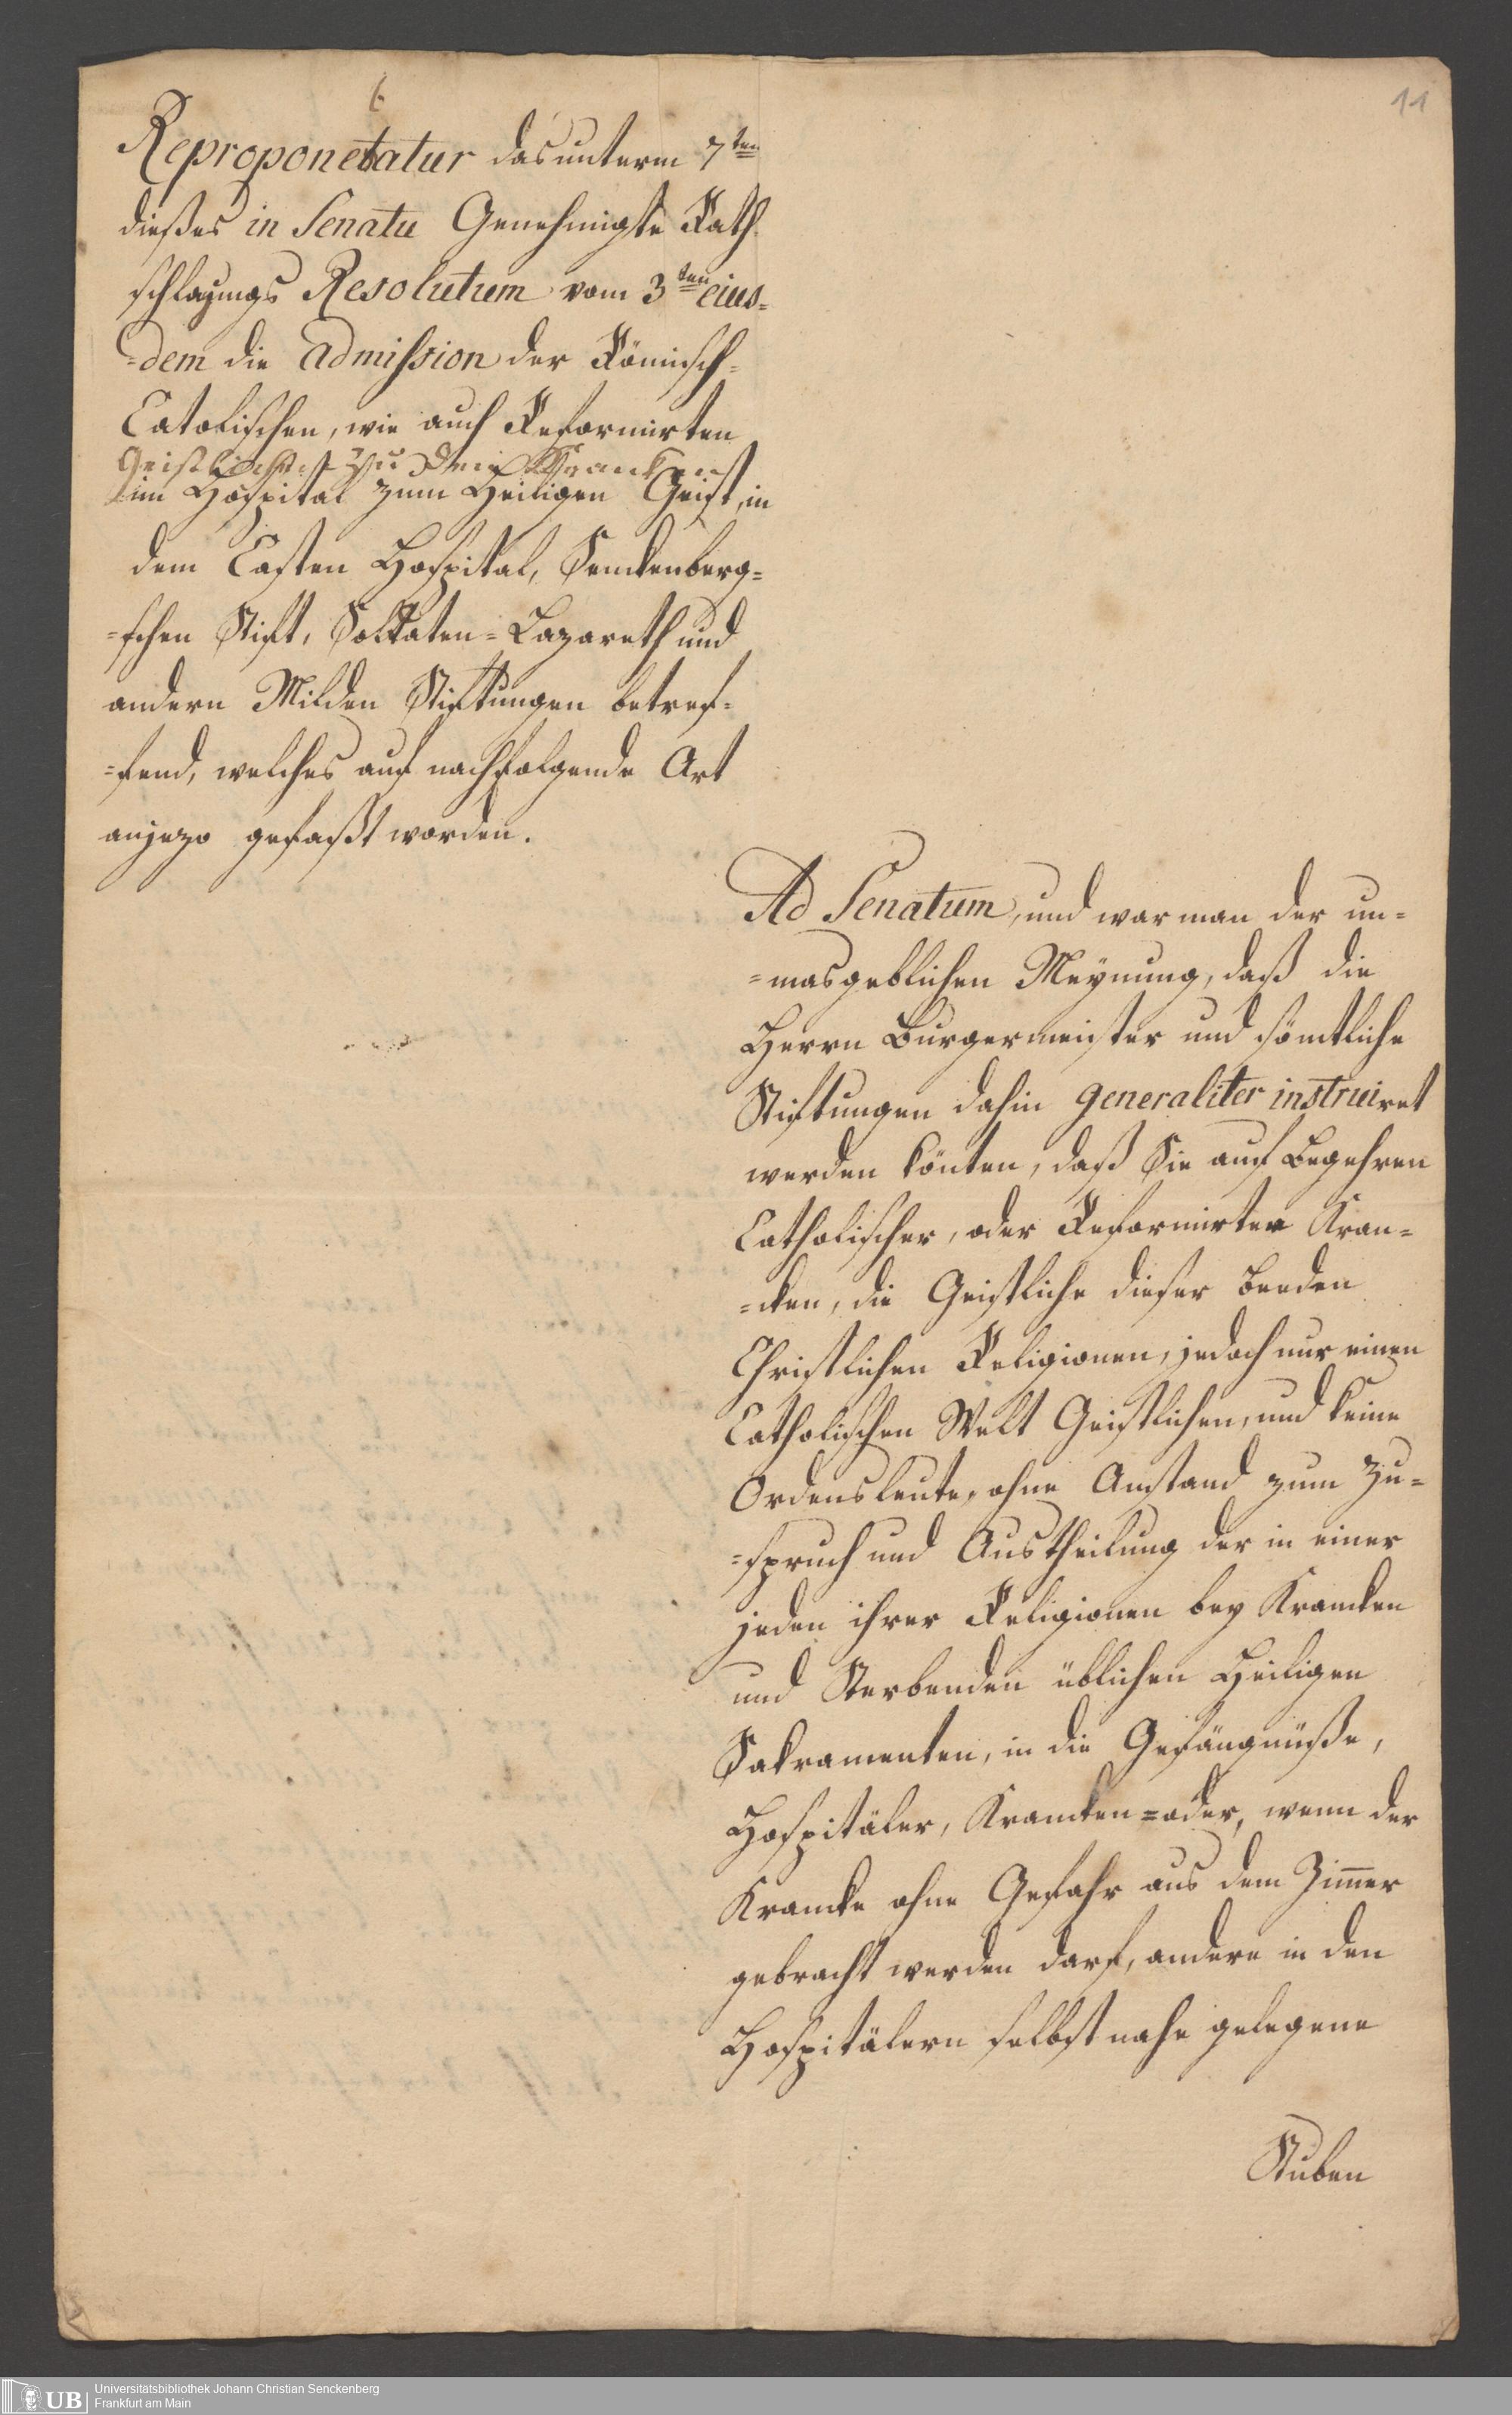 6
11
Reproponetatur das unterm 7ten
dießes in Senatu Genehmigte Rath
schlagungs Resolutum vom 3ten eius=
=dem die Admission der Römisch=
Catolischen, wie auch Reformirten
Geistlichen zu den Krancken
im Hospital zum Heiligen Geist, in
dem Casten Hospital, Senckenberg=
=schen Stift, Soldaten=Lazareth und
andern Milden Stiftungen betref=
=fend, welches auf nachfolgende Art
anjezo gefaßt worden.
Ad Senatum, und war man der un=
=masgeblichen Meynung, daß die
Herrn Burgermeister und sömtliche
Stiftungen dahin generaliter instruiret
werden könten, daß Sie auf Begehren
Catholischer, oder Reformirter Kran=
=cken, die Geistliche dieser beeden
Christlichen Religionen, jedoch nur einen
Catholischen Welt Geistlichen, und keine
Ordensleute, ohne Anstand zum Zu=
=spruch und Austheilung der in einer
jeden ihrer Religionen bey Krancken
und Sterbenden üblichen Heiligen
Sakramenten, in die Gefängnüße,
Hospitäler, Krancken=oder, wenn der
Krancke ohne Gefahr aus dem Zim̅er
gebracht werden darf, andere in den
Hospitälern selbst nahe gelegene
Stuben
UB
Universitätsbibliothek Johann Christian Senckenberg
Frankfurt am Main